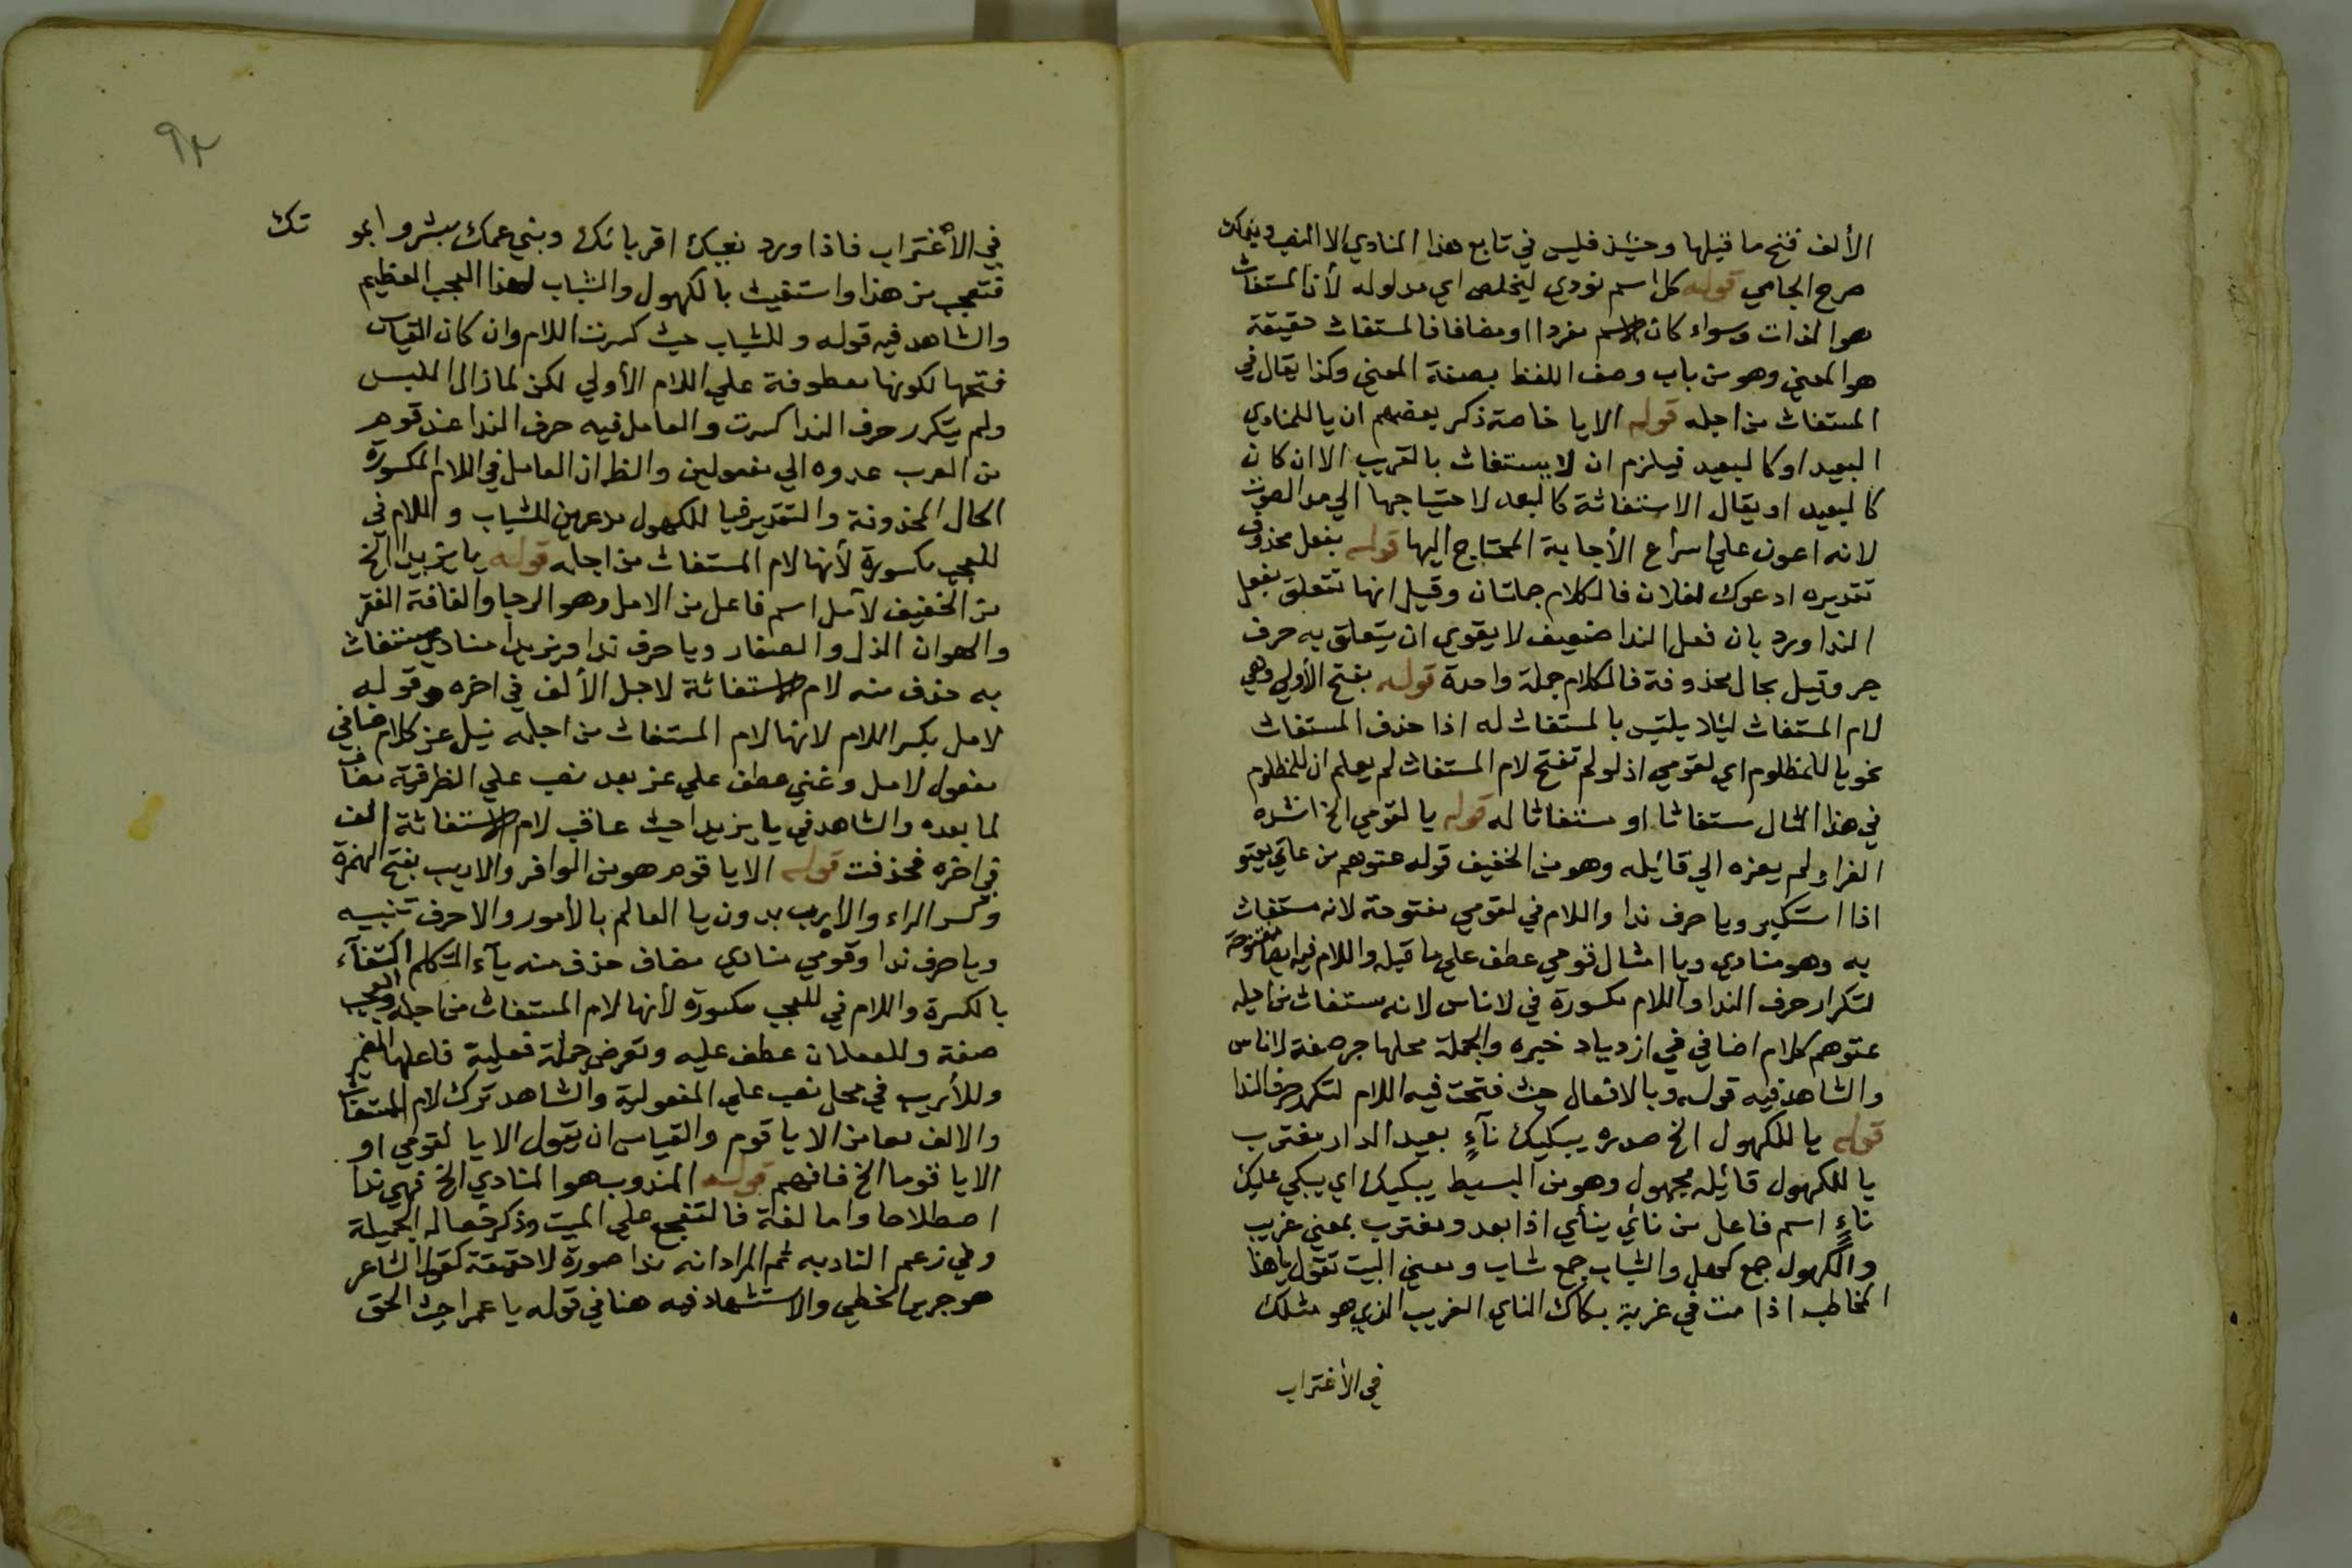 الألف فتح ما قبلها وحينئذ فليس في تابع هذا المنادي الا النصب
صرح الجامي قوله كل اسم نودي ليخلص اي مدلوله لأن المستغاث
هو الذات وسواء كان الاسم مفردا او مضافا فالمستغاث حقيقة
هو المعني وهو من باب وصف اللفظ بصفة المعني وكذا يقال في
المستغاث من اجله قوله الا يا خاصة ذكر بعضهم ان يا للمنادي
البعيد او كالبعيد فيلزم ان لا يستغاث بالقريب الا ان كان
كالبعيد او يقال الاستغاثة كالبعد لاحتياجها الي مد الصوت
لانه اعون علي اسراع الأجابة المحتاج اليها قوله بفعل محذوف
تقديره ادعوك لفلان فالكلام جملتان وقيل انها تتعلق بفعل
الندا ورد بان فعل الندا ضعيف لا يقوي ان يتعلق به حرف
جر وقيل بحال محذوفة فالكلام جملة واحدة قوله بفتح الأولي وهي
لام المستغاث ليلا يلتبس بالمستغاث له اذا حذف المستغاث
نحو يا للمظلوم اي لقومي اذ لو لم تفتح لام المستغاث لم يعلم ان للمظلوم
في هذا المثال مستغاثا او مستغاثا له قوله يا لقومي الخ انشده
الفراء ولم يعزه الي قائيله وهو من الخفيف قوله عتوهم من عاتي يعتو
اذا استكبر ويا حرف ندا واللام في لقومي مفتوحة لانه مستغاث
به وهو منادي ويا امثال قومي عطف علي ما قبله واللام فيه ايضا مفتوحة
لتكرار حرف الندا واللام مكسورة في لاناس لانه مستغاث من اجله
عتوهم كلام اضافي في ازدياد خبره والجملة محلها جر صفة لاناس
والشاهد فيه قوله وبالامثال حيث فتحت فيه اللام لتكرر حرف الندا
قوله يا للكهول الخ صدره يبكيك نآءٍ بعيد الدار مغترب
يا للكهول قائيله مجهول وهو من البسيط يبكيك اي يبكي عليك
ناءٍ اسم فاعل من نائي ينأي اذا بعد ومغترب بمعني غريب
والكهول جمع كهل والشباب جمع شاب ومعني البيت تقول يا هذا
المخاطب اذا مت في غربة بكاك الناي الغريب الذي هو مثلك
في الأغتراب
٩٢
في الأغتراب فاذا ورد نعيك اقربائك وبني عمك بشروا
فتعجب من هذا واستغيث بالكهول والشباب لهذا العجب العظيم
والشاهد فيه قوله وللشباب حيث كسرت اللام وان كان القياس
فتحها لكونها معطوفة علي اللام الأولي لكن لما زال اللبس
ولم يتكرر حرف الندا كسرت والعامل فيه حرف الندا عند قوم
من العرب عدوه الي مفعولين والظ ان العامل في اللام المكسورة
الحال المحذوفة والتقدير فيا للكهول مدعوين للشباب واللام في
للعجب مكسورة لأنها لام المستغاث من اجله قوله يا يزيدا الخ
من الخفيف لآمل اسم فاعل من الامل وهو الرجا والفاقة الفقر
والهوان الذل والصغار ويا حرف ندا ويزيدا منادي مستغاث
به حذف منه لام الاستغاثة لاجل الألف في اخره وقوله
لامل بكسر اللام لانها لام المستغاث من اجله نيل عز كلام اضافي
مفعول لامل وغني عطف علي عز بعد نصب علي الظرفية مضاف
لما بعده والشاهد في يا يزيدا حيث عاقب لام الاستغاثة الف
في اخره فحذفت قوله الا يا قوم هو من الوافر والاريب بفتح الهمزة
وكسر الراء والارب بدون يا العالم بالأمور والا حرف تنبيه
ويا حرف ندا وقومي منادي مضاف حذف منه يآء المتكلم اكتفآء
بالكسرة واللام في للعجب مكسورة لأنها لام المستغاث من اجله والعجيب
صفة وللغفلات عطف عليه وتعرض جملة فعلية فاعلها الضمير
وللأريب في محل نصب علي المفعولية والشاهد ترك لام المستغاث
والالف معا من الا يا قوم والقياس ان يقول الا يا لقومي او
الا يا قوما الخ فافهم قوله المندوب هو المنادي الخ فهي ندا
اصطلاحا واما لغة فالتفجع علي الميت وذكر خصاله الجميلة
وفي زعم النادبه ثم المراد انه ندا صورة لا حقيقة كقول الشاعر
هو جرير الخطي والاستشهاد فيه هنا في قوله يا عمرا حيث الحق